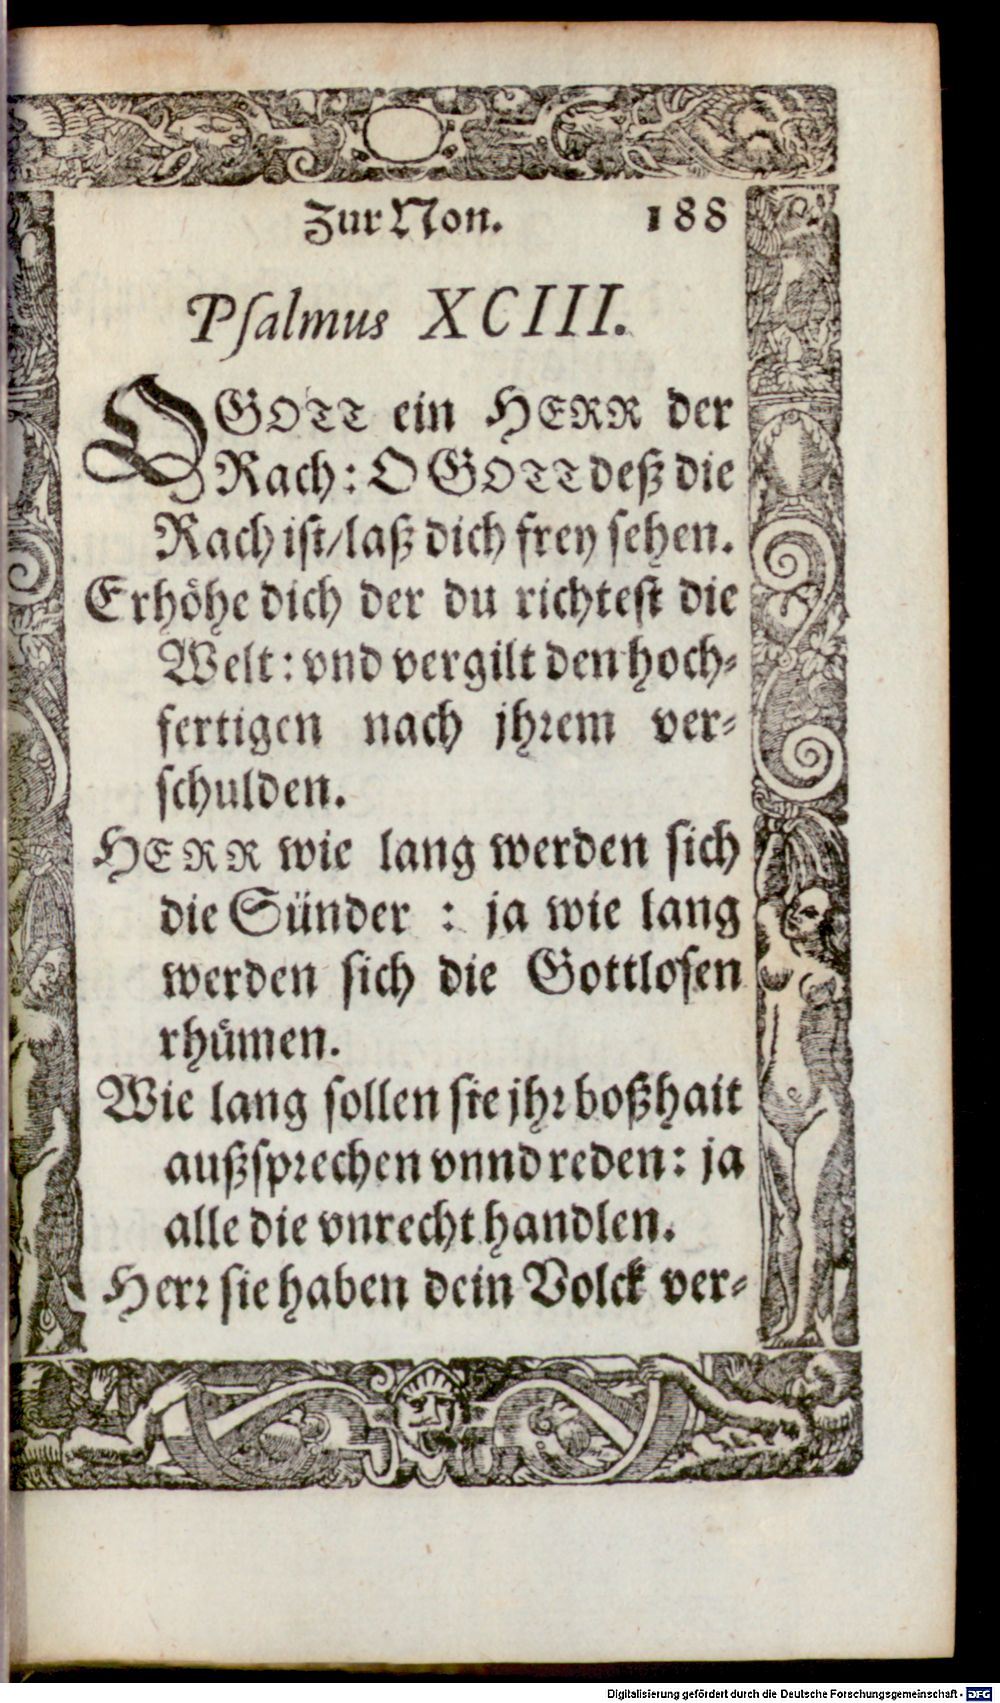 Zur Non. 188
Psalmus XCIII.
O GOTT ein HERR der
Rach: O GOTT deß die
Rach ist/ laß dich frey sehen.
Erhöhe dich der du richtest die
Welt: vnd vergilt den hoch-
fertigen nach jhrem ver-
schulden.
HERR wie lang werden sich
die Sünder : ja wie lang
werden sich die Gottlosen
rhümen.
Wie lang sollen sie jhr boßhait
außsprechen vnnd reden: ja
alle die vnrecht handlen.
Herr sie haben dein Volck ver-
Digitalisierung gefördert durch die Deutsche Forschungsgemeinschaft - DFG